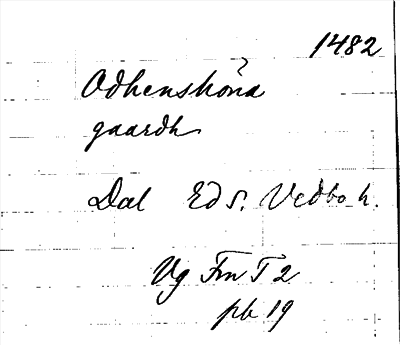 1482
Odhenshöna
gaardh
Dal Ed s. Vedbo h.
Vg Fm T 2
pb 19